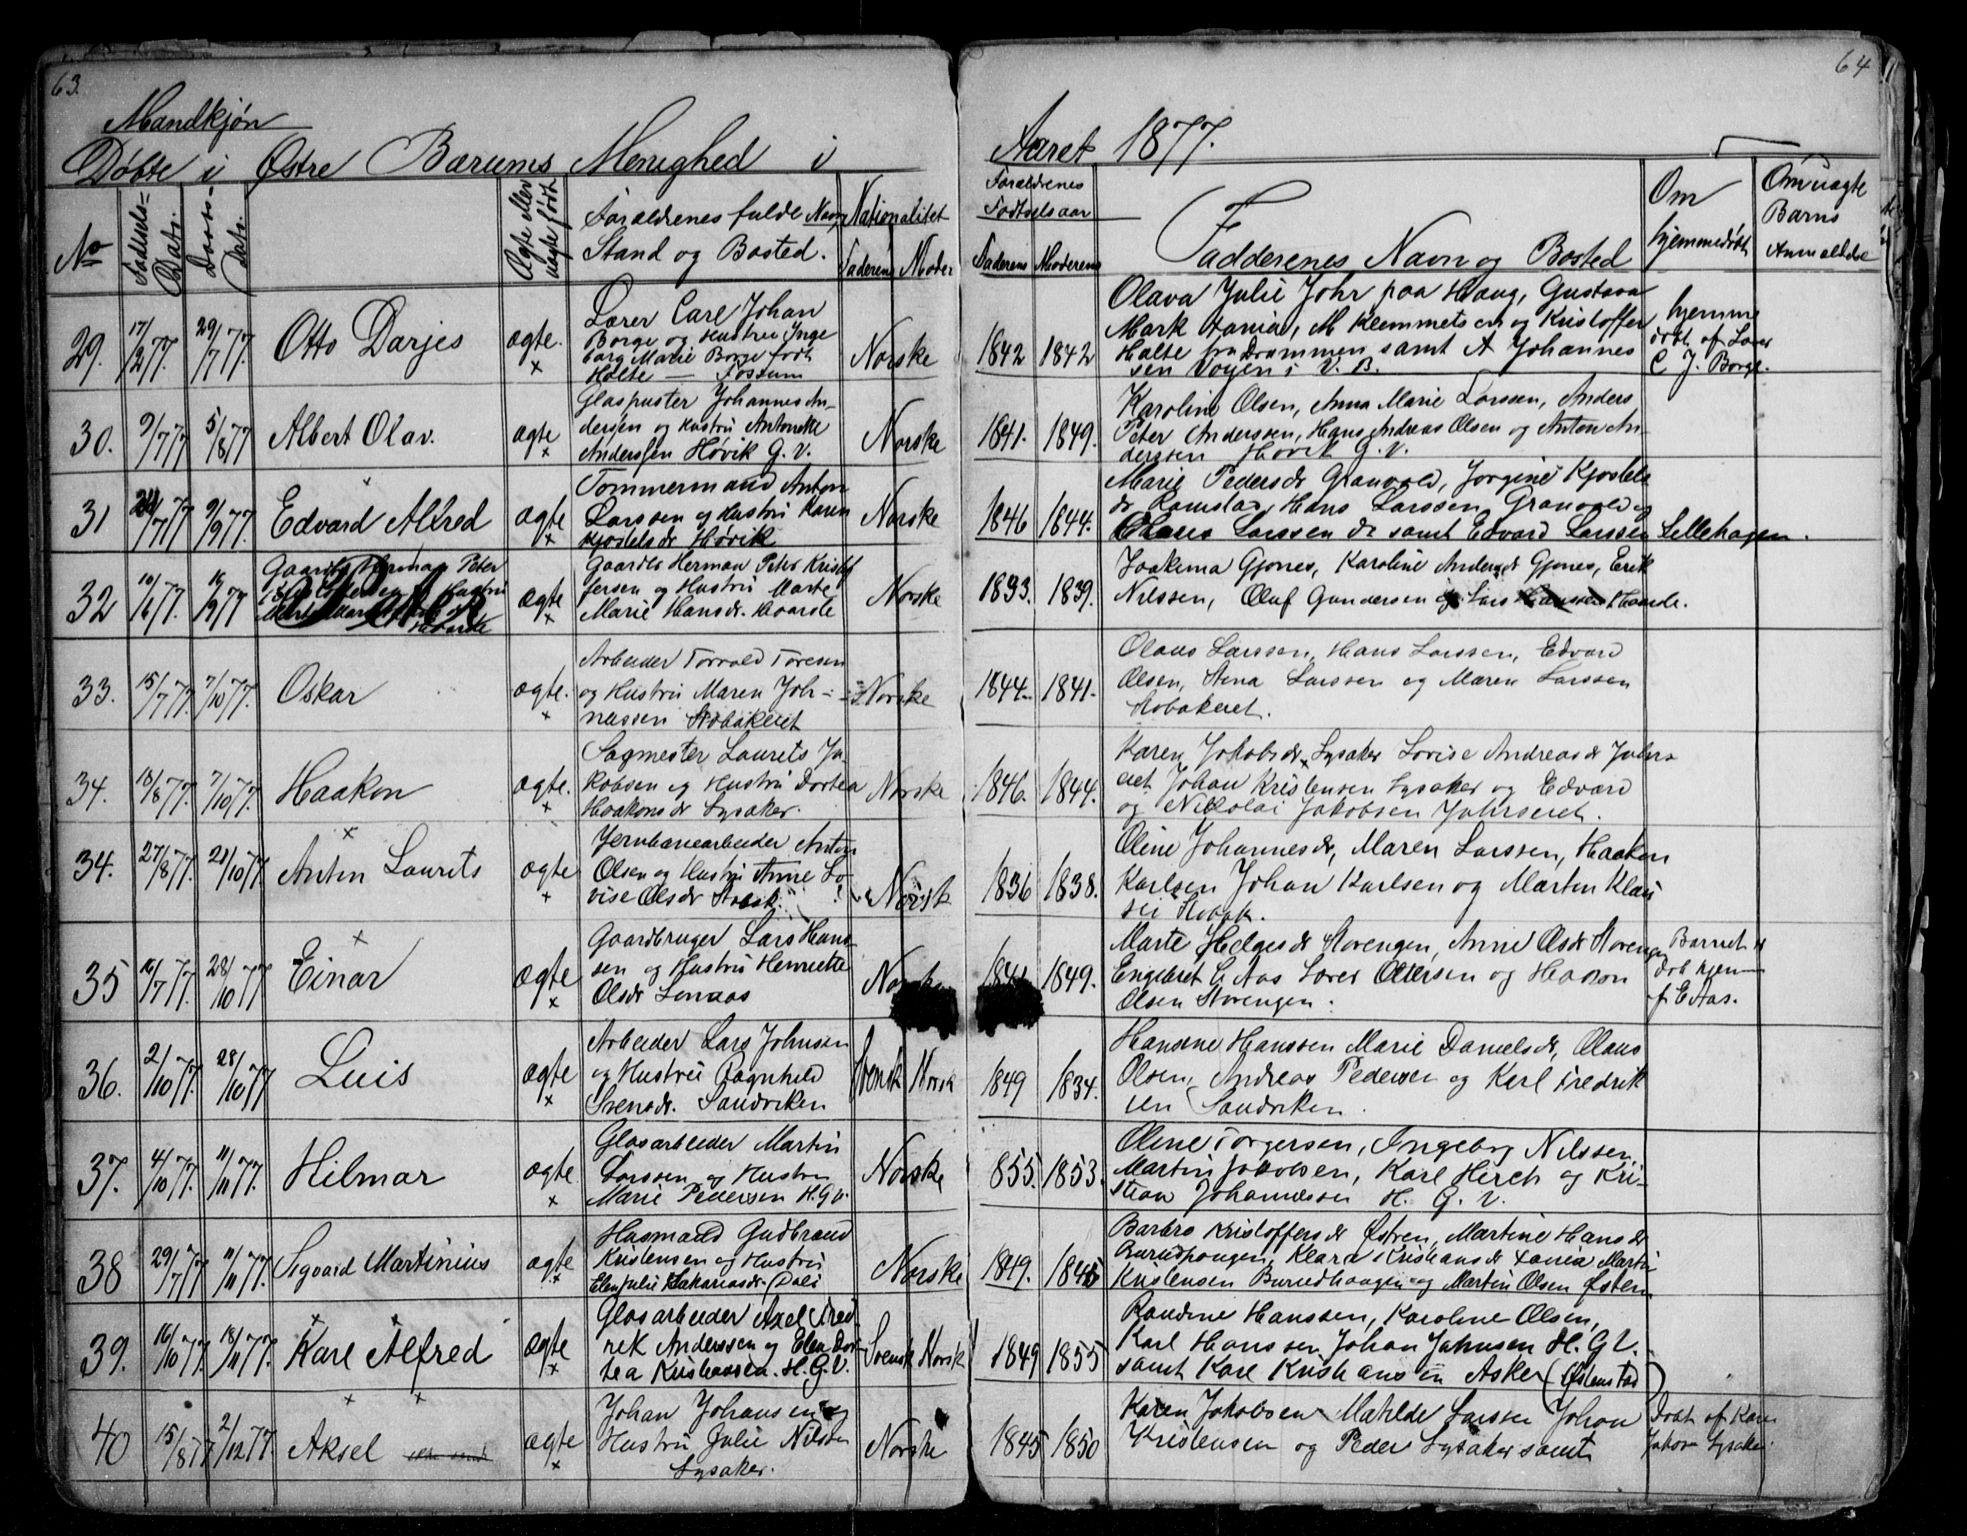 63.
64
Mandkjøn
Døbte i Østre Bærums Menighed i
Aaret 1877.
No
Fødsels-Dato.
Daabs-Dato.
Ægte eller uægte født
Forældrenes fulde Navn, Stand og Bosted.
Nationalitet
Faderens Moder
Forældrenes Fødselsaar
Faderens Moderens
Faddernes Navn og Bosted
Om hjemmedøbt
Om uægte Barns Anmeldelse
29. 17/2 77. 29/7 77. Otto Darjes ægte. Lærer Carl Johan
Borge og Hustru Inge
borg Marie Borge født
Holte — Fossum
Norske 1842 1842
Olava Julie Johr paa Haug, Gustava
Mark Fania, M Klemmetsen og Kristoffer
Holte fra Drammen samt A Johannes
sen Vøyen i V. B.
hjemme
døbt af Lærer
C J. Borge.
30. 9/7 77 5/8 77 Albert Olav. ægte Glaspuster Johannes An-
dersen og Hustru Antonette
Anderssen Høvik G. V.
Norske 1841. 1849.
Karoline Olsen, Anna Marie Larssen, Anders
Peter Anderssen, Hans Andreas Olsen og Anton An-
derssen Høvik G. V.
31 /7 77 9/9 77. Edvard Alfred ægte Tømmermand Anton
Larssen og Hustru Karen
Kjøstelsdr Høvik
Norske 1846 1844.
Marie Pedersdr Granvold, Jørgine Kjøstels
dr Ramstad, Hans Larssen Granvold og
Olaus Larssen do samt Edvard Larssen Lillehagen.
32 10/6 77. 16/9 77 ægte Gaardbr Herman Peter Kristof
fersen og Hustru Marte
Marie Hansdr. Haarde
Norske 1833. 1839.
Joakima Gjønes, Karoline Andersdr Gjønes, Erik
Nilssen, Oluf Gundersen og Lars Hanssen Haarde.
33. 15/7 77. 7/10 77. Oskar ægte. Arbeider Torvald Toresen
og Hustru Maren Joh-
nassen Stobakeret
Norske 1844. 1841.
Olaus Larssen, Hans Larssen, Edvard
Olsen, Stina Larssen og Maren Larssen
Stobakeret.
34. 18/8 77. 7/10 77. Haakon ægte. Sagmester Laurets Ja-
kobsen og Hustru Dortea
Haakonsdr Lysaker.
Norske 1846. 1844.
Karen Jakobsdr Lysaker Lovise Andreasdr
Johan Kristensen Lysaker og Edvard
og Nikolai Jakobsen
34. 27/8 77. 21/10 77 Anton Laurits ægte Jernbanearbeider Anton
Olsen og Hustru Anne Lo-
vise Olsdr Stabæk.
Norsk 1836 1838.
Oline Johannesdr, Maren Larssen, Haakon
Karlsen Johan Karlsen og Martin Klau
sen Stabæk.
35 16/7 77. 28/10 77 Einar ægte Gaardbruger Lars Hans-
sen og Hustru Henriette
Olsdr
Norske 1849.
Marte Helgesdr Storengen, Anne Olsdr Storengen
Engebret E. Aas Lærer Ottersen og Haakon
Olsen Storengen.
Barnet er
døb hjem
f. E Aas.
36. 2/10 77. 28/10 77 Luis ægte Arbeider Lars Johnsen
og Hustru Ragnhild
Svensdr. Sandviken
Svensk Norsk 1849 1834.
Hansine Hanssen Marie Danielsdr, Olaus
Olsen, Andreas Pedersen og Karl Fredrik
sen Sandviken.
37. 4/10 77. 11/11 77. Hilmar ægte Glasarbeider Martin
Larssen og Hustru
Marie Pedersen H. G. V.
Norske 855. 1853.
Oline Torgersen, Ingeborg Nilssen,
Martin Jakobsen, Karl Herch og Kri-
stian Johannesen H. G. V.
38 29/7 77 11/11 77. Sigvard Martinius ægte Husmand Gudbrand
Kristensen og Hustru
Elen Julie Zakariasdr. Dæli
Norske 1849. 1845
Barbro Kristoffersdr Østern, Martine Hansdr
Burudhaugen, Klara Kristiansdr Fania Martin
Kristensen Burudhaugen og Martin Olsen Østern
39. 16/10 77. 18/11 77. Karl Alfred ægte Glasarbeider Axel Fred-
rik Anderssen og Elen Dor-
tea Kristiansen. H. G. V.
Svensk Norsk 1849 1855
Randine Hanssen, Karoline Olsen,
Karl Hanssen, Johan Johnsen H. G V.
samt Karl Kristiansen Asker (Østenstad)
40 15/8 77 2/12 77. Aksel ægte Johan Johansen og
Hustru Julie Nilssen
Lysaker.
Norske 1845 1850
Karen Jakobsen Matilde Larssen Johan
Kristensen og Peder Lysaker samt
Døbt af Karen
Jakobs Lysaker.